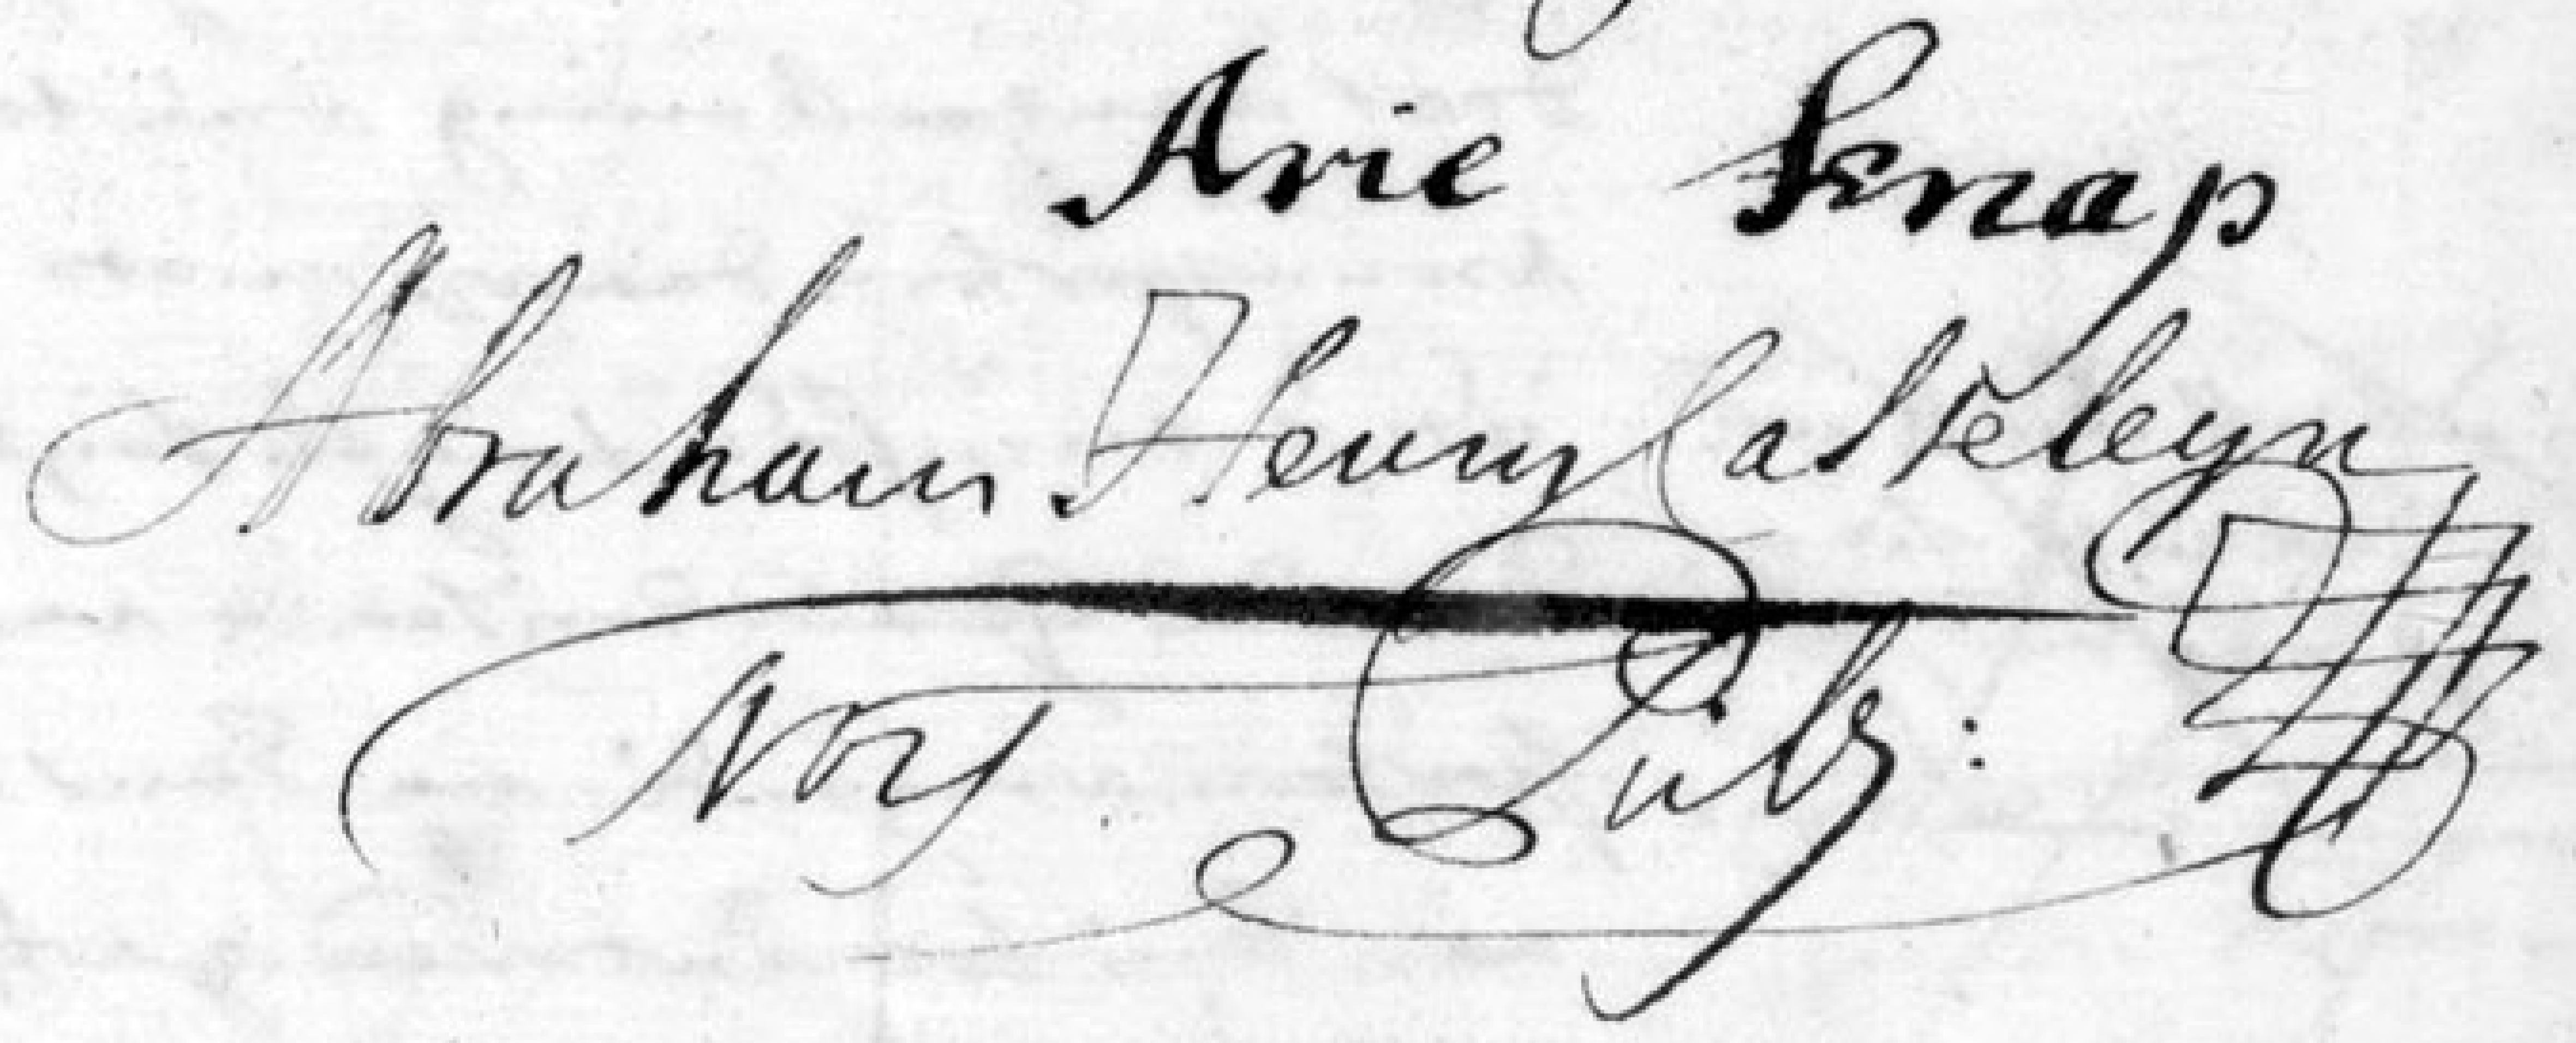 Arie Knap
Abraham Henry Casteleyn
Nory Publ: